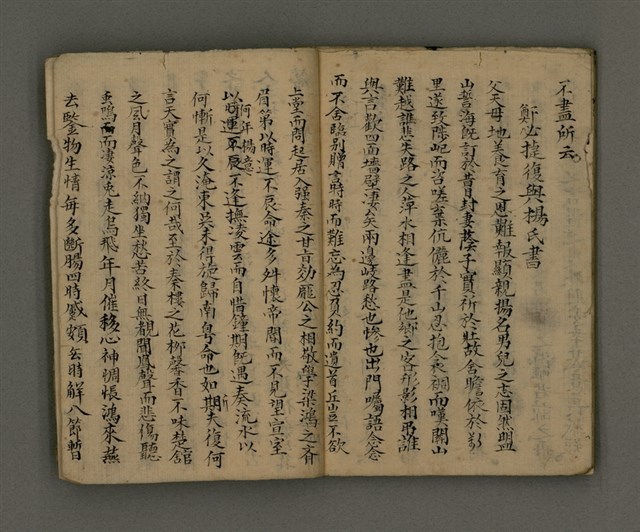 不盡所云
鄭必捷復與楊氏書
父天母地養育之恩難報顯親揚名男兒之志固然盟
山誓海既訂於昔日封妻蔭子實所於壯故舍瞻依於
里遂致陟屺而咨嗟棄伉儷於千山忍抱衾裯而嘆關山
難越誰悲失路之人萍水相逢盡是他鄉之客形影相吊誰
與言歡四面墻壁凄矣兩邊岐路愁也慘也出門囑語念念
而不舍臨別贈言時時而難忘為忍負約而遺首丘豈不欲
上堂而問起居入強秦之甘旨効龐公之相敬學梁鴻之齊
眉第以時運不辰命途多舛懷帝閽而不見望宣室
以何年楊意不逢撫凌雲而自惜鍾期既遇奏流水以
何慚是以久淹東吳未得旋歸南粵命也如斯夫復何
言天實為之謂之何哉至於秦樓之花柳馨香不味楚館
之風月聲色不納獨坐愁苦終日無覩聞風聲而悲傷聽
虫鳴而凄涼兔走烏飛年月催移心神惆悵鴻來燕
去鑒物生情每多斷腸四時感頻去時解八節暫